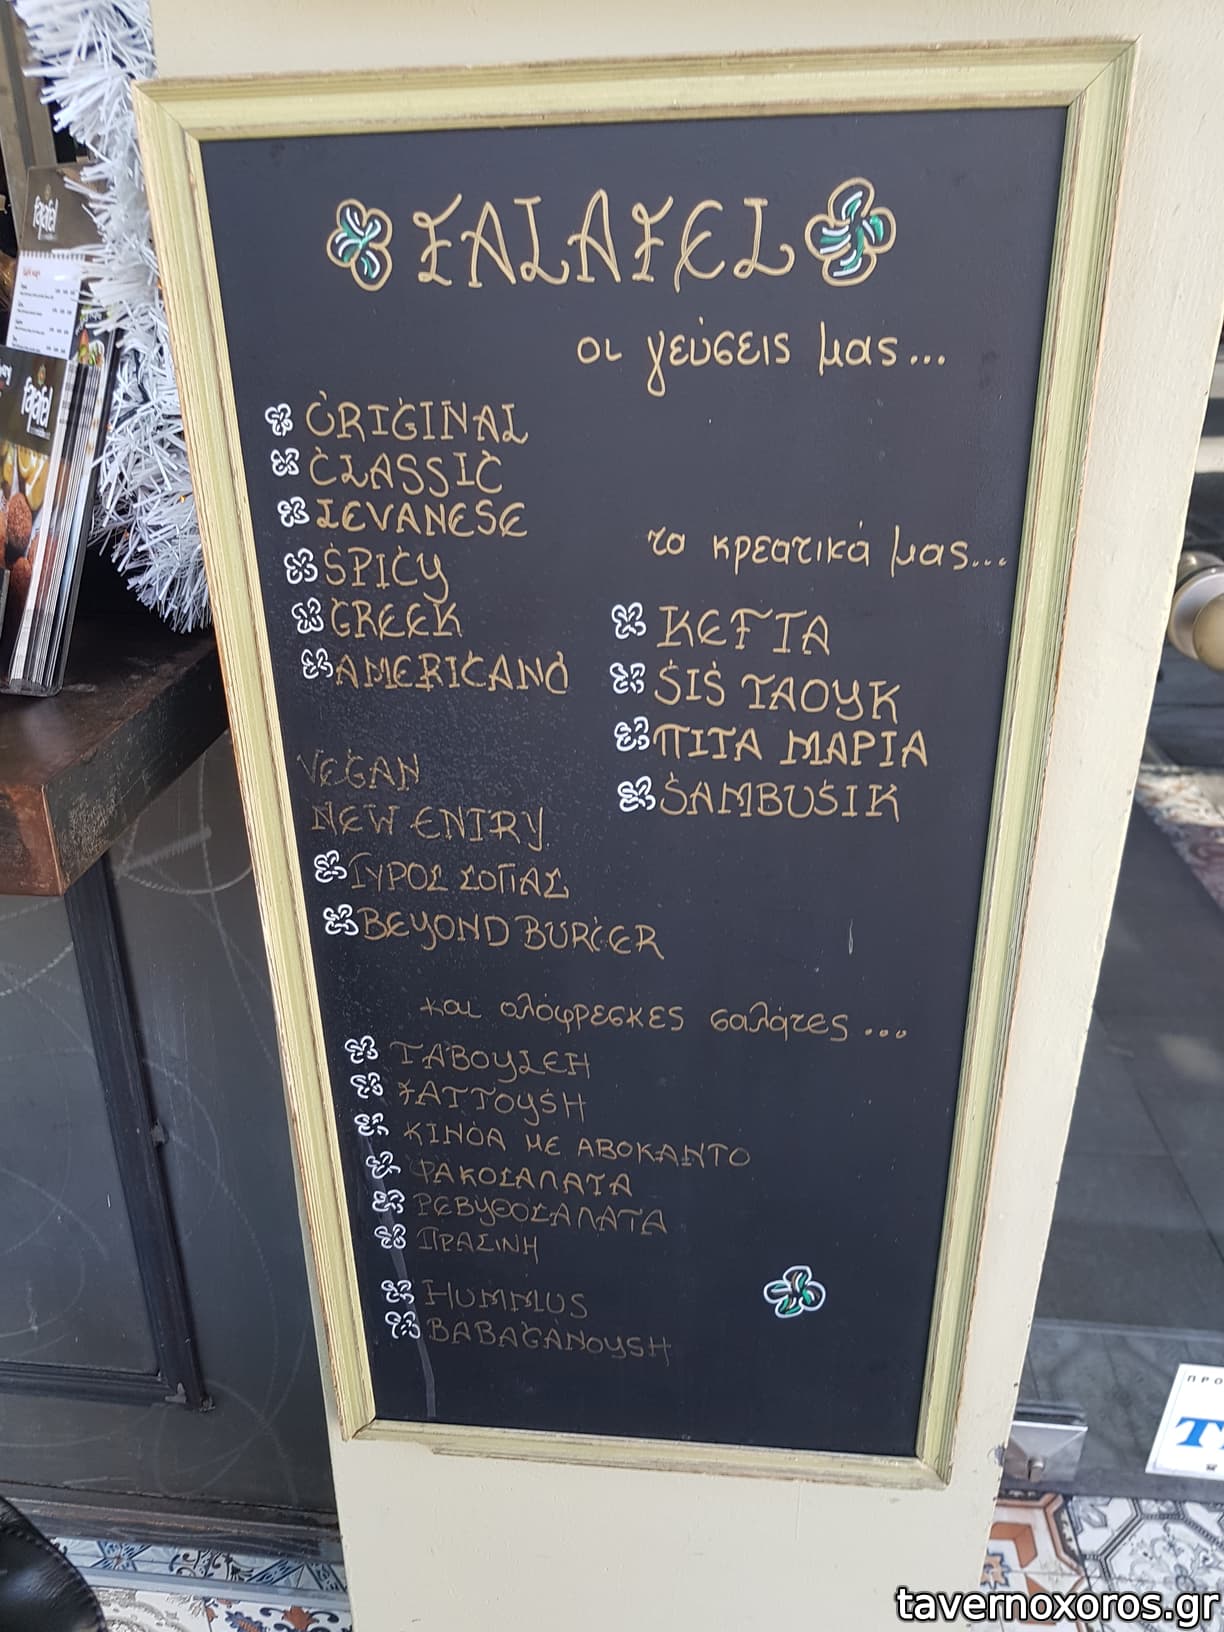 FALAFEL
οι γεύσεις μας...
ORIGINAL
CLASSIC
LEVANESE
SPICY
GREEK
AMERICANO
τα κρεατικά μας...
KEFTA
SIS TAOYK
ΠΙΤΑ ΜΑΡΙΑ
SAMBUSIK
VEGAN
NEW ENTRY
ΓΥΡΟΣ ΣΟΓΙΑΣ
BEYOND BURGER
και ολόφρεσκες σαλάτες...
TABOYLEH
FATTOYSH
ΚΙΝΟΑ ΜΕ ΑΒΟΚΑΝΤΟ
ΦΑΚΟΣΑΛΑΤΑ
ΡΕΒΥΘΟΣΑΛΑΤΑ
ΠΡΑΣΙΝΗ
HUMMUS
BABAGANOYSH
falafel
falafel
tavernoxoros.gr